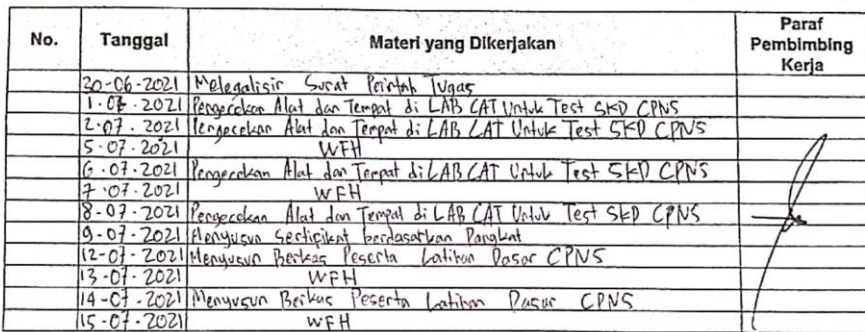 No. Tanggal Materi yang Dikerjakan Paraf Pembimbing Kerja
30-06-2021 Melegalisir Surat Perintah Tugas
1-07-2021 Pengecekan Alat dan Tempat di LAB CAT Untuk Test SKD CPNS
2-07-2021 Pengecekan Alat dan Tempat di LAB CAT Untuk Test SKD CPNS
5-07-2021 WFH
6-07-2021 Pengecekan Alat dan Tempat di LAB CAT Untuk Test SKD CPNS
7-07-2021 WFH
8-07-2021 Pengecekan Alat dan Tempat di LAB CAT Untuk Test SKD CPNS
9-07-2021 Menyusun Sertifikat berdasarkan Pangkat
12-07-2021 Menyusun Berkas Peserta Latihan Dasar CPNS
13-07-2021 WFH
14-07-2021 Menyusun Berkas Peserta Latihan Dasar CPNS
15-07-2021 WFH